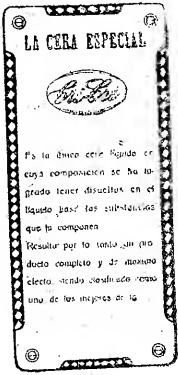 LA CERA ESPECIAL
Es la única cera líquida en
cuya composición se ha lo-
grado tener disueltas en el
líquido base las substancias
que la componen
Resulta por lo tanto un pro-
ducto completo y de máximo
efecto, siendo clasificado como
una de las mejores de la